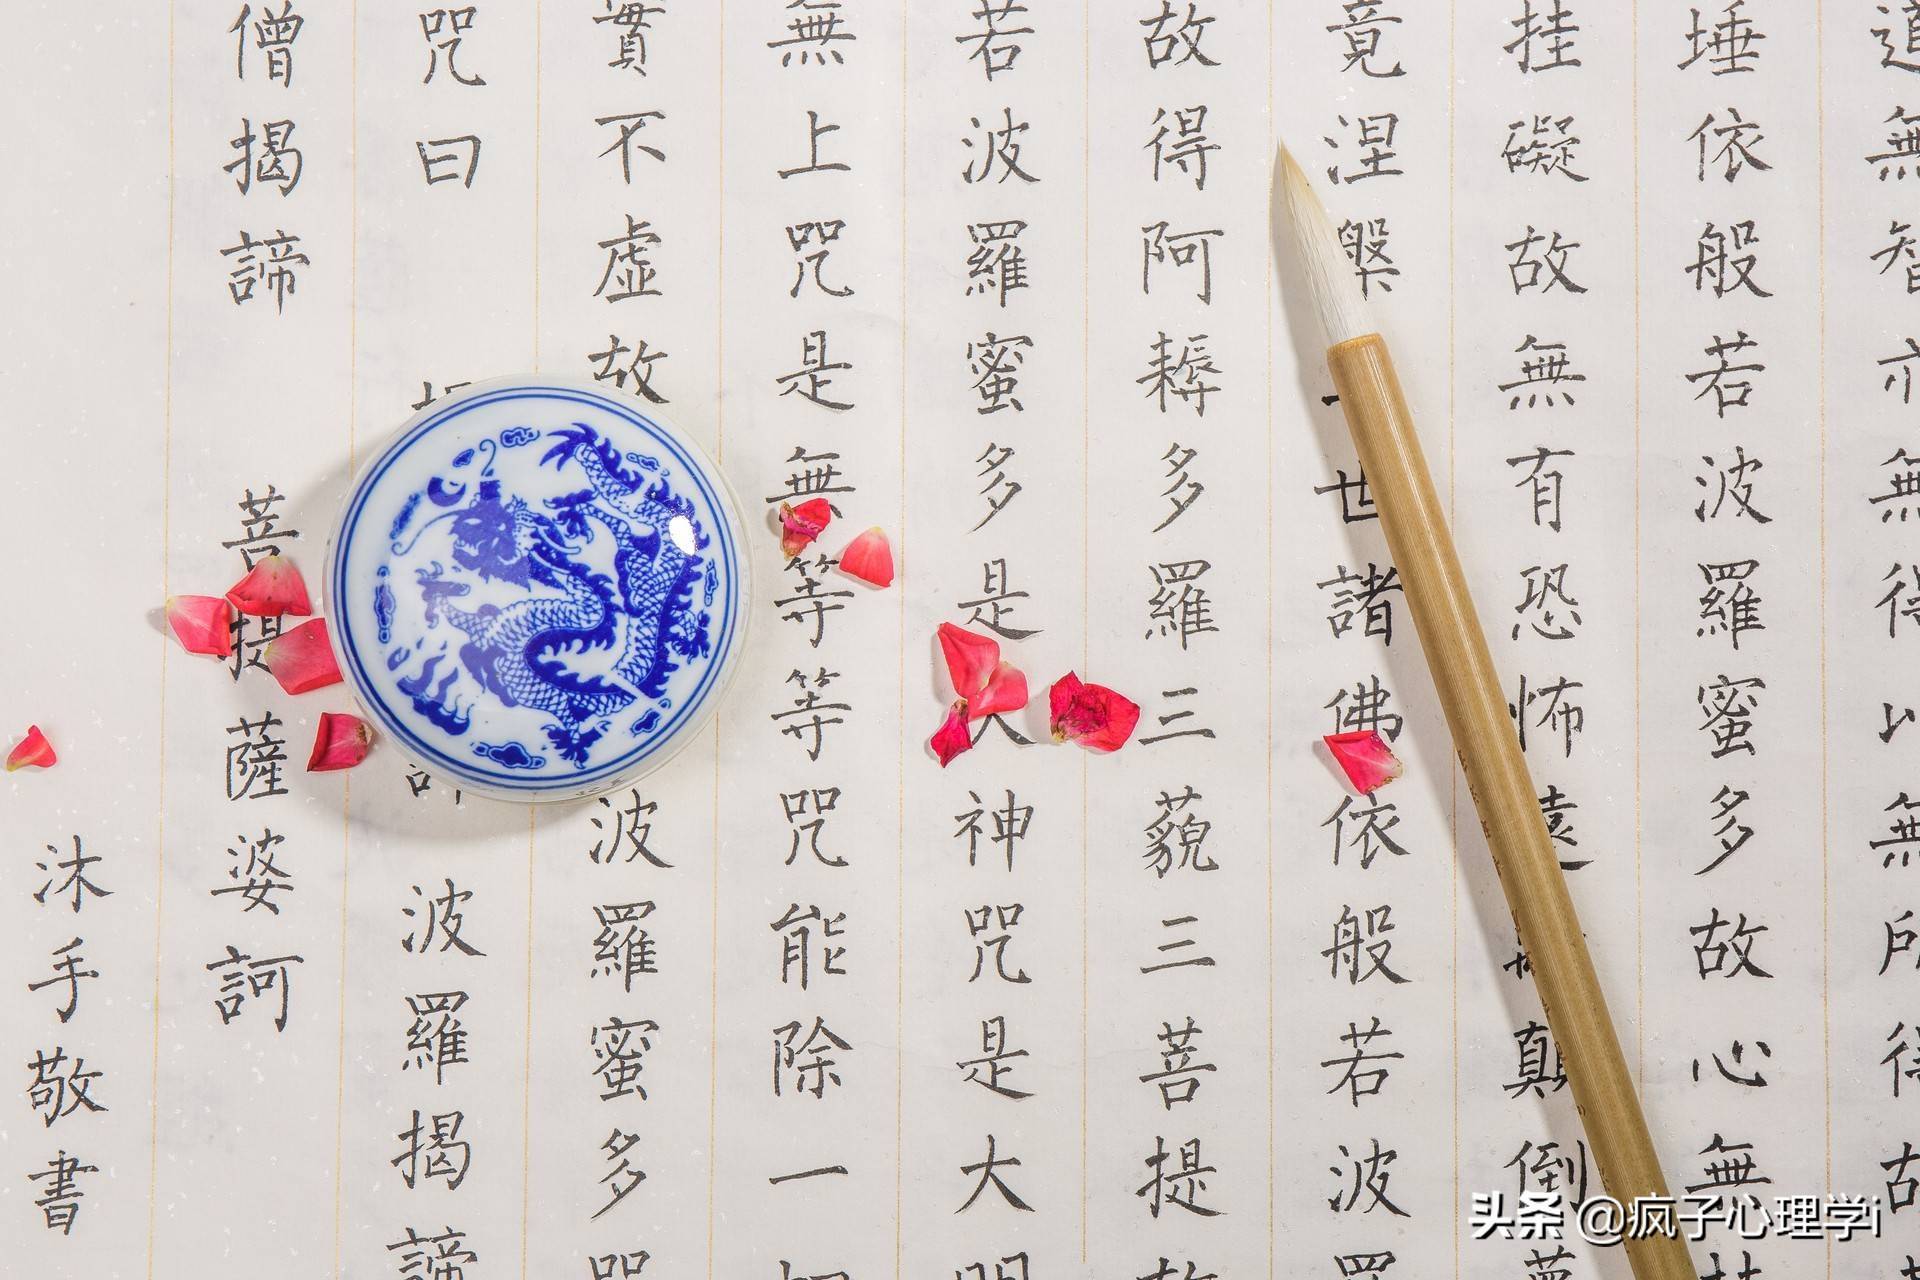 道無智亦無得以無所得故
埵依般若波羅蜜多故心無
挂礙故無有恐怖遠顛倒夢
竟涅槃世諸佛依般若波羅
故得阿耨多羅三藐三菩提故
若波羅蜜多是大神咒是大明
無上咒是無等等咒能除一切
實不虛故波羅蜜多咒
咒曰波羅揭諦
僧揭諦 菩提薩婆訶
沐手敬書
头条 @疯子心理学i